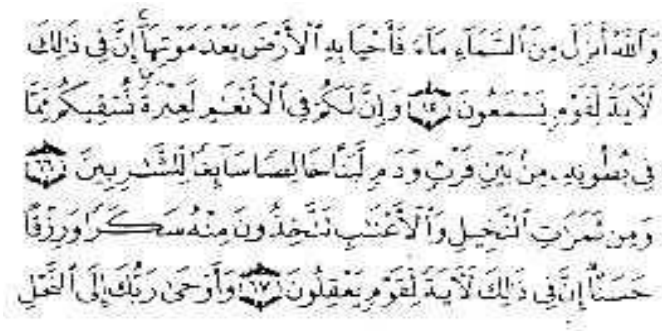 وَٱللَّهُ أَنزَلَ مِنَ ٱلسَّمَآءِ مَآءً فَأَحْيَا بِهِ ٱلْأَرْضَ بَعْدَ مَوْتِهَآ إِنَّ فِى ذَٰلِكَ
لَآيَةً لِّقَوْمٍ يَسْمَعُونَ ٦٥ وَإِنَّ لَكُمْ فِى ٱلْأَنْعَٰمِ لَعِبْرَةً نُّسْقِيكُم مِّمَّا
فِى بُطُونِهِۦ مِنۢ بَيْنِ فَرْثٍ وَدَمٍ لَّبَنًا خَالِصًا سَآئِغًا لِّلشَّٰرِبِينَ ٦٦
وَمِن ثَمَرَٰتِ ٱلنَّخِيلِ وَٱلْأَعْنَٰبِ تَتَّخِذُونَ مِنْهُ سَكَرًا وَرِزْقًا
حَسَنًا إِنَّ فِى ذَٰلِكَ لَآيَةً لِّقَوْمٍ يَعْقِلُونَ ٦٧ وَأَوْحَىٰ رَبُّكَ إِلَى ٱلنَّحْلِ